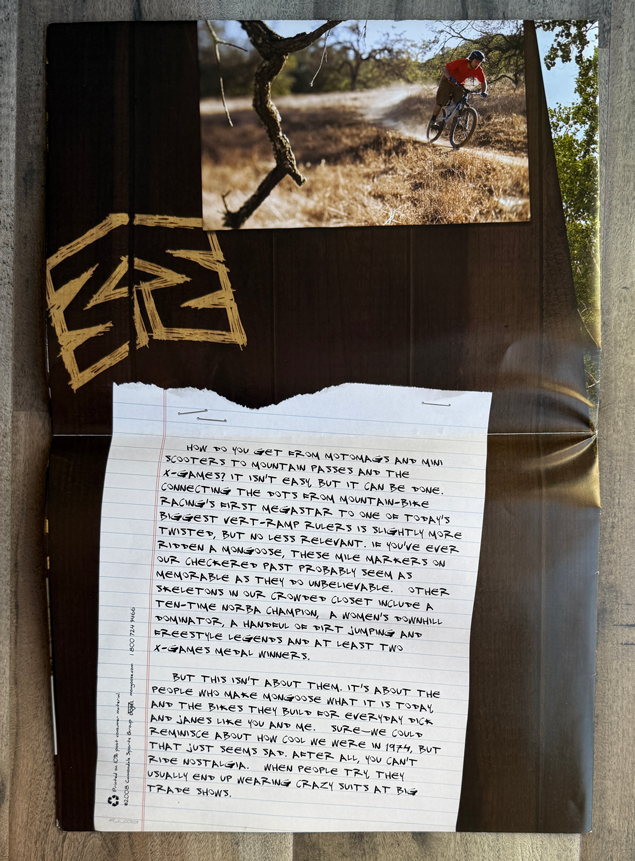 HOW DO YOU GET FROM MOTOMAGS AND MINI
SCOOTERS TO MOUNTAIN PASSES AND THE
X-GAMES? IT ISN'T EASY, BUT IT CAN BE DONE.
CONNECTING THE DOTS FROM MOUNTAIN-BIKE
RACING'S FIRST MEGASTAR TO ONE OF TODAY'S
BIGGEST VERT-RAMP RULERS IS SLIGHTLY MORE
TWISTED, BUT NO LESS RELEVANT. IF YOU'VE EVER
RIDDEN A MONGOOSE, THESE MILE MARKERS ON
OUR CHECKERED PAST PROBABLY SEEM AS
MEMORABLE AS THEY DO UNBELIEVABLE. OTHER
SKELETONS IN OUR CROWDED CLOSET INCLUDE A
TEN-TIME NORBA CHAMPION, A WOMEN'S DOWNHILL
DOMINATOR, A HANDFUL OF DIRT JUMPING AND
FREESTYLE LEGENDS AND AT LEAST TWO
X-GAMES MEDAL WINNERS.
BUT THIS ISN'T ABOUT THEM. IT'S ABOUT THE
PEOPLE WHO MAKE MONGOOSE WHAT IT IS TODAY,
AND THE BIKES THEY BUILD FOR EVERYDAY DICK
AND JANES LIKE YOU AND ME. SURE—WE COULD
REMINISCE ABOUT HOW COOL WE WERE IN 1974, BUT
THAT JUST SEEMS SAD. AFTER ALL, YOU CAN'T
RIDE NOSTALGIA. WHEN PEOPLE TRY, THEY
USUALLY END UP WEARING CRAZY SUITS AT BIG
TRADE SHOWS.
Printed on 10% post consumer material
©2008 Cannondale Sports Group mongoose.com 1 800 724 9466